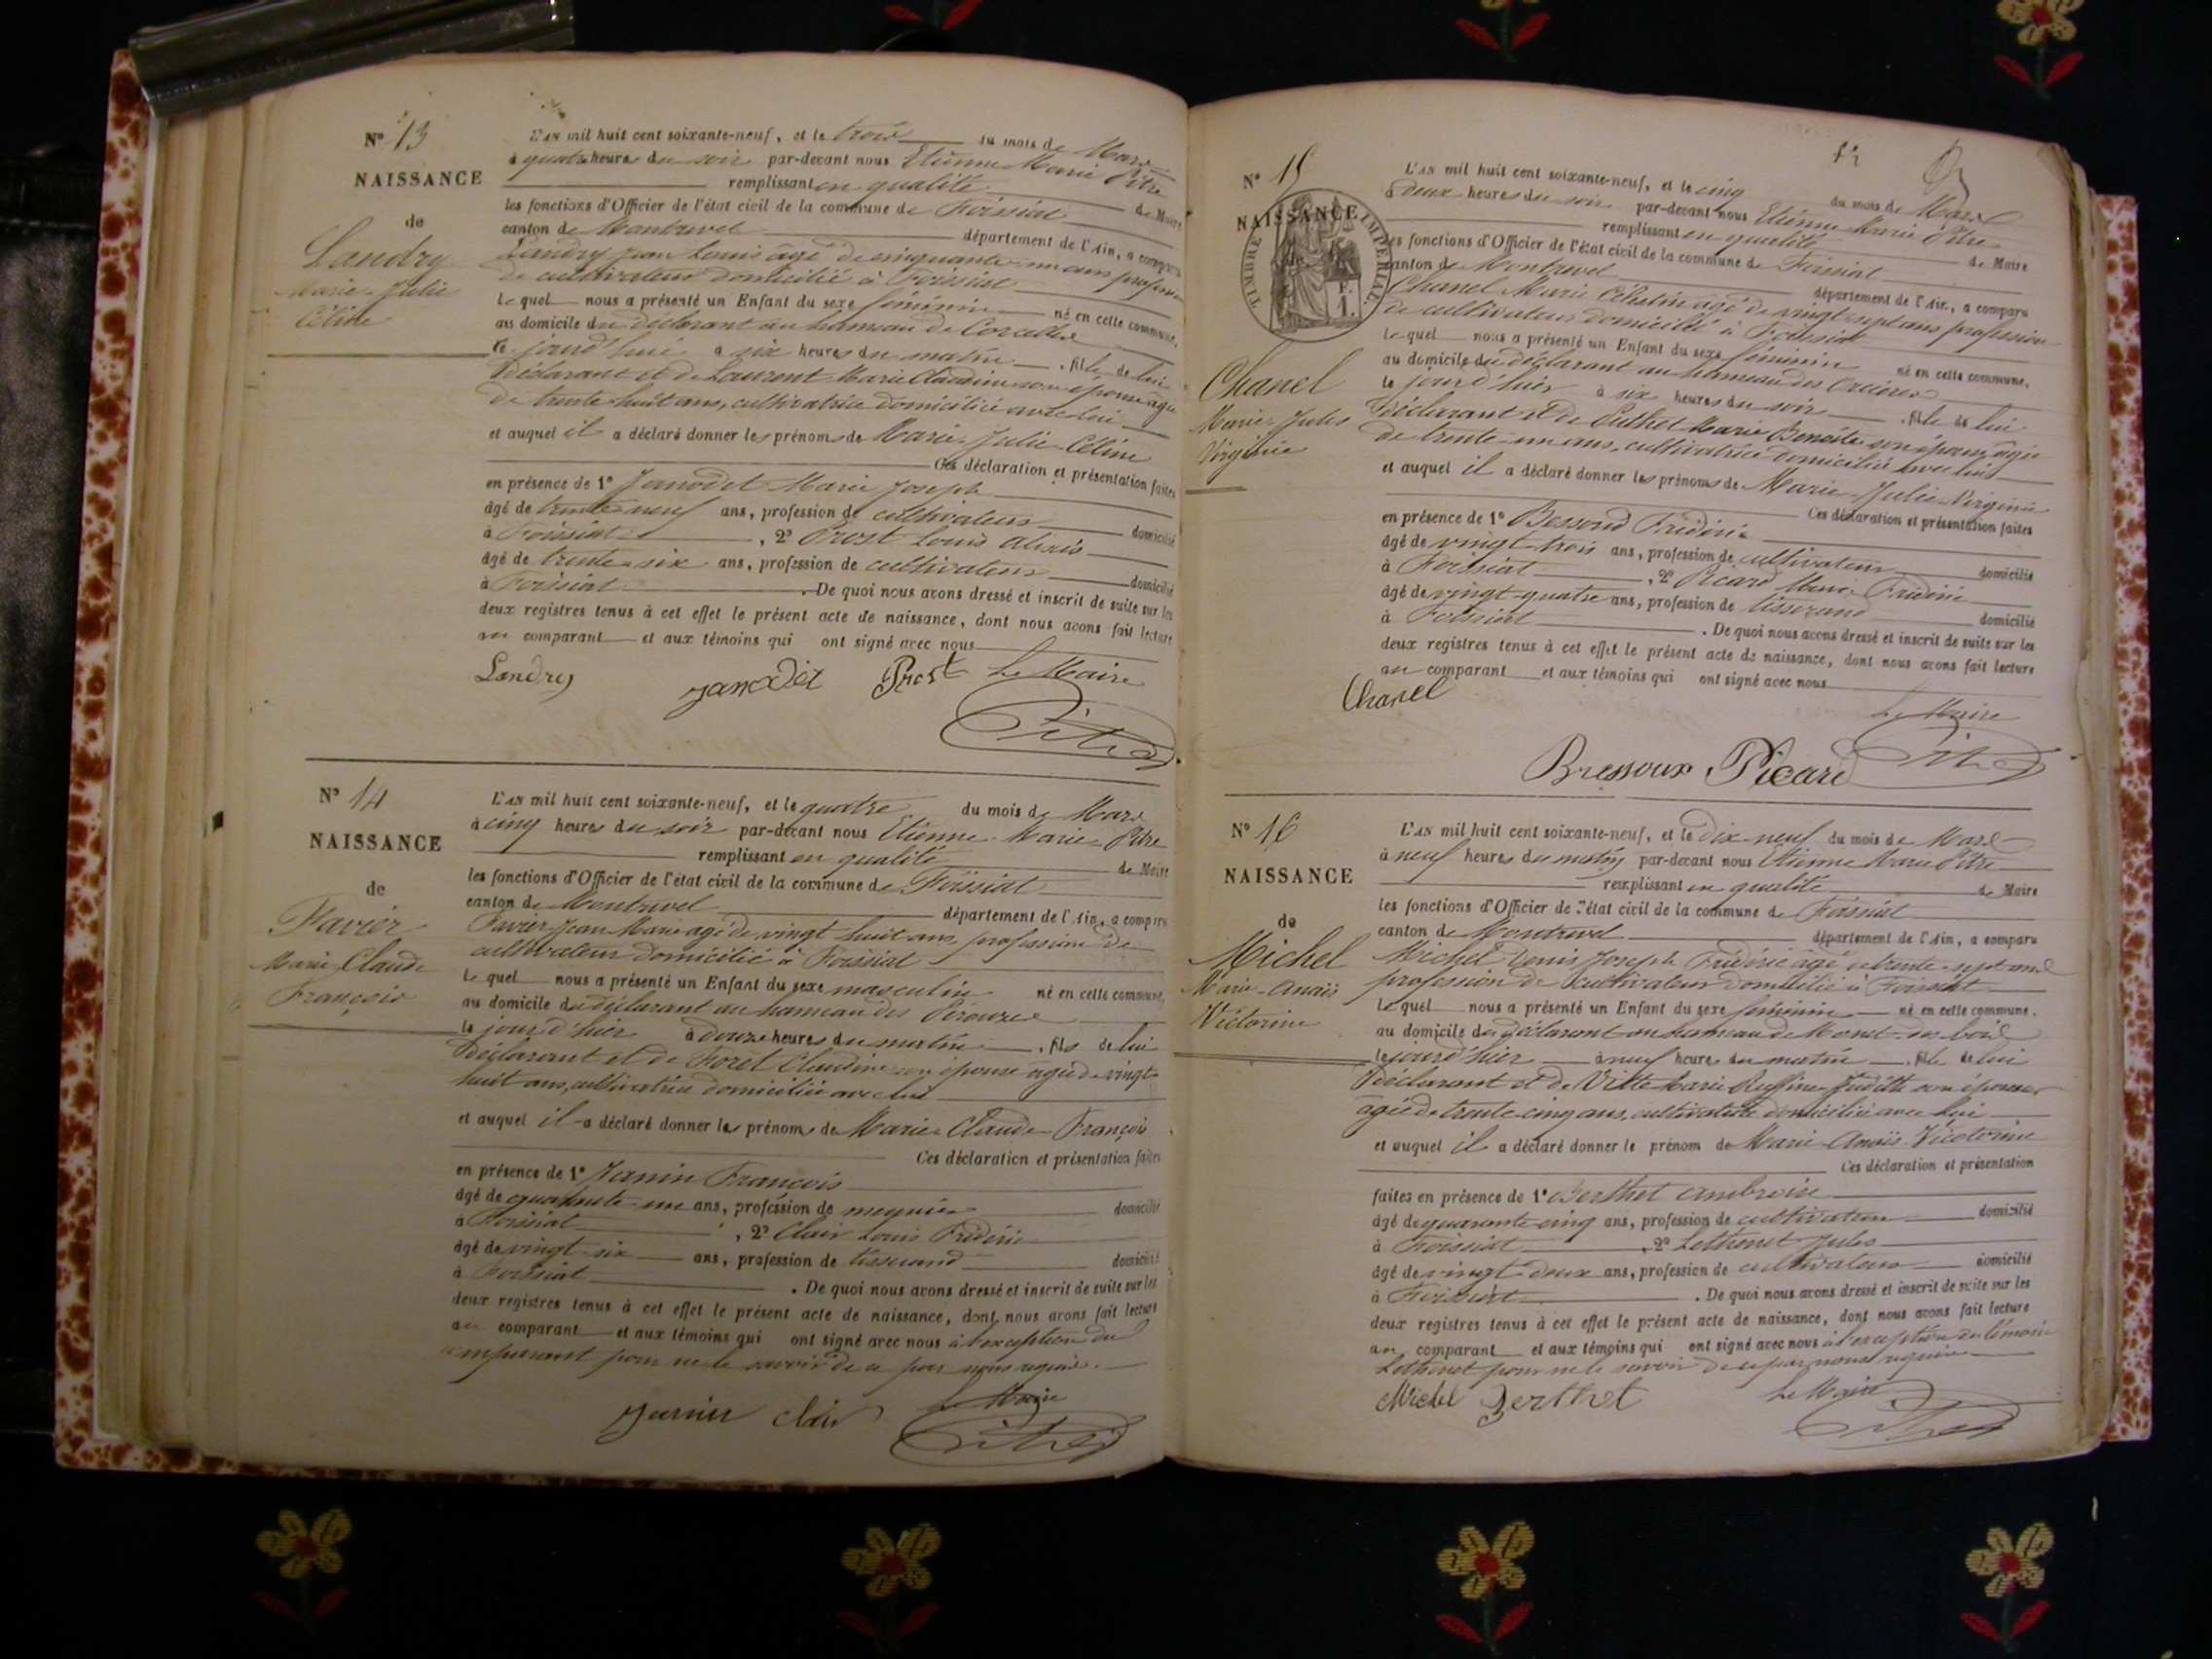 N° 13
NAISSANCE
de
Landry
Marie Julie
Céline
L'AN mil huit cent soixante-neuf, et le trois du mois de Mars
à quatre heures du soir par-devant nous Etienne Marie Pitre
remplissant en qualité de Maire
les fonctions d'Officier de l'état civil de la commune de Foissiat
canton de Montrevel département de l'Ain, a comparu
Landry Jean Louis âgé de cinquante-un ans profession
de cultivateur domicilié à Foissiat
Lequel nous a présenté un Enfant du sexe féminin né en cette commune,
au domicile du déclarant au hameau de
ce jourd'hui à six heures du matin, fille de lui
Déclarant et de Laurent Marie Claudine son épouse âgée
de trente-huit ans, cultivatrice domiciliée avec lui
et auquel il a déclaré donner les prénoms de Marie Julie Céline
Ces déclaration et présentation faites
en présence de 1° Janodet Marie Joseph
âgé de trente-neuf ans, profession de cultivateur domicilié
à Foissiat, 2° Prost Louis Alexis
âgé de trente-six ans, profession de cultivateur domicilié
à Foissiat. De quoi nous avons dressé et inscrit de suite sur les
deux registres tenus à cet effet le présent acte de naissance, dont nous avons fait lecture
au comparant et aux témoins qui ont signé avec nous
Landry Janodet Prost Le Maire
Pitre
N° 14
NAISSANCE
de
Favier
Marie Claude
François
L'AN mil huit cent soixante-neuf, et le quatre du mois de Mars
à cinq heures du soir par-devant nous Etienne Marie Pitre
remplissant en qualité de Maire
les fonctions d'Officier de l'état civil de la commune de Foissiat
canton de Montrevel département de l'Ain, a comparu
Favier Jean Marie âgé de vingt huit ans, profession de
cultivateur domicilié à Foissiat
Lequel nous a présenté un Enfant du sexe masculin né en cette commune,
au domicile du déclarant au hameau des Perouzes
le jour d'hier à douze heures du matin, fils de lui
Déclarant et de Foret Claudine son épouse âgée de vingt
huit ans, cultivatrice domiciliée avec lui
et auquel il a déclaré donner les prénoms de Marie Claude François
Ces déclaration et présentation faites
en présence de 1° Janin François
âgé de quarante-un ans, profession de meunier domicilié
à Foissiat, 2° Clair Louis Frédéric
âgé de vingt-six ans, profession de tisserand domicilié
à Foissiat. De quoi nous avons dressé et inscrit de suite sur les
deux registres tenus à cet effet le présent acte de naissance, dont nous avons fait lecture
au comparant et aux témoins qui ont signé avec nous à l'exception du
comparant pour ne le savoir de ce par nous requis.
Janin Clair Le Maire
Pitre
N° 15
NAISSANCE
de
TIMBRE IMPERIAL
F.
1.
Chanel
Marie Julie
Virginie
L'AN mil huit cent soixante-neuf, et le cinq du mois de Mars
à deux heures du soir par-devant nous Etienne Marie Pitre
remplissant en qualité de Maire
les fonctions d'Officier de l'état civil de la commune de Foissiat
canton de Montrevel département de l'Ain, a comparu
Chanel Marie Célestin âgé de vingt-sept ans profession
de cultivateur domicilié à Foissiat
Lequel nous a présenté un Enfant du sexe féminin né en cette commune,
au domicile du déclarant au hameau des
le jour d'hier à six heures du soir, fille de lui
Déclarant et de Marie Benoite son épouse, âgée
de trente-un ans, cultivatrice domiciliée avec lui
et auquel il a déclaré donner les prénoms de Marie Julie Virginie
Ces déclaration et présentation faites
en présence de 1° Frédéric
âgé de vingt-trois ans, profession de cultivateur domicilié
à Foissiat, 2° Picard Marie Frédéric
âgé de vingt-quatre ans, profession de tisserand domicilié
à Foissiat. De quoi nous avons dressé et inscrit de suite sur les
deux registres tenus à cet effet le présent acte de naissance, dont nous avons fait lecture
au comparant et aux témoins qui ont signé avec nous
Chanel Le Maire
Bressoux Picard Pitre
N° 16
NAISSANCE
de
Michel
Marie-Anaïs
Victorine
L'AN mil huit cent soixante-neuf, et le dix-neuf du mois de Mars
à neuf heures du matin par-devant nous Etienne Marie Pitre
remplissant en qualité de Maire
les fonctions d'Officier de l'état civil de la commune de Foissiat
canton de Montrevel département de l'Ain, a comparu
Michel Denis Joseph Frédéric âgé de trente-sept ans
profession de cultivateur domicilié à Foissiat
Lequel nous a présenté un Enfant du sexe féminin né en cette commune,
au domicile du déclarant au hameau de
le jour d'hier à neuf heures du matin, fille de lui
Déclarant et de Marie Judith son épouse
âgée de trente-cinq ans, cultivatrice domiciliée avec lui
et auquel il a déclaré donner le prénom de Marie Anaïs Victorine
Ces déclaration et présentation
faites en présence de 1° Berthet Ambroise
âgé de quarante-cinq ans, profession de cultivateur domicilié
à Foissiat, 2° Lethenet Jules
âgé de vingt-deux ans, profession de cultivateur domicilié
à Foissiat. De quoi nous avons dressé et inscrit de suite sur les
deux registres tenus à cet effet le présent acte de naissance, dont nous avons fait lecture
au comparant et aux témoins qui ont signé avec nous à l'exception du témoin
Lethenet pour ne le savoir de ce par nous requis
Michel Berthet Le Maire
Pitre